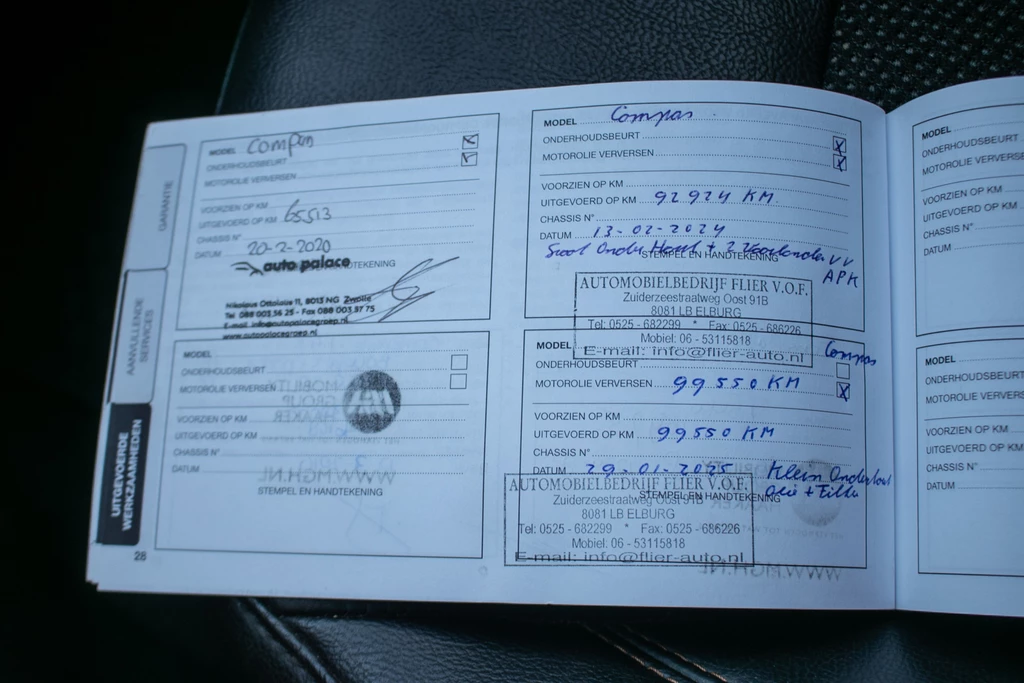 GARANTIE
AANVULLENDE
SERVICES
UITGEVOERDE
WERKZAAMHEDEN
28
MODEL Compas
ONDERHOUDSBEURT
MOTOROLIE VERVERSEN
VOORZIEN OP KM
UITGEVOERD OP KM 65513
CHASSIS N°
DATUM 20-2-2020
STEMPEL EN HANDTEKENING
auto palace
Nikolaus Ottoluis 11, 8013 NG Zwolle
Tel 088 003 56 25 - Fax 088 003 57 75
E-mail info@autopalacegroep.nl
www.autopalacegroep.nl
MODEL
ONDERHOUDSBEURT
MOTOROLIE VERVERSEN
VOORZIEN OP KM
UITGEVOERD OP KM
CHASSIS N°
DATUM
STEMPEL EN HANDTEKENING
MODEL Compas
ONDERHOUDSBEURT
MOTOROLIE VERVERSEN
VOORZIEN OP KM
UITGEVOERD OP KM 92924 KM
CHASSIS N°
DATUM 13-02-2024
Groot Onderhoud + 2 Voorbanden VV
STEMPEL EN HANDTEKENING
APK
AUTOMOBIELBEDRIJF FLIER V.O.F.
Zuiderzeestraatweg Oost 91B
8081 LB ELBURG
Tel: 0525 - 682299 * Fax: 0525 - 686226
Mobiel: 06 - 53115818
E-mail: info@flier-auto.nl
MODEL Compas
ONDERHOUDSBEURT
MOTOROLIE VERVERSEN 99550 KM
VOORZIEN OP KM
UITGEVOERD OP KM 99550 KM
CHASSIS N°
DATUM 29-01-2025 Klein Onderhoud
Olie + Filter
STEMPEL EN HANDTEKENING
AUTOMOBIELBEDRIJF FLIER V.O.F.
Zuiderzeestraatweg Oost 91B
8081 LB ELBURG
Tel: 0525 - 682299 * Fax: 0525 - 686226
Mobiel: 06 - 53115818
E-mail: info@flier-auto.nl
MODEL
ONDERHOUDSBEURT
MOTOROLIE VERVERSE
VOORZIEN OP KM
UITGEVOERD OP KM
CHASSIS N°
DATUM
MODEL
ONDERHOUDSBEURT
MOTOROLIE VERVERS
VOORZIEN OP KM
UITGEVOERD OP KM
CHASSIS N°
DATUM